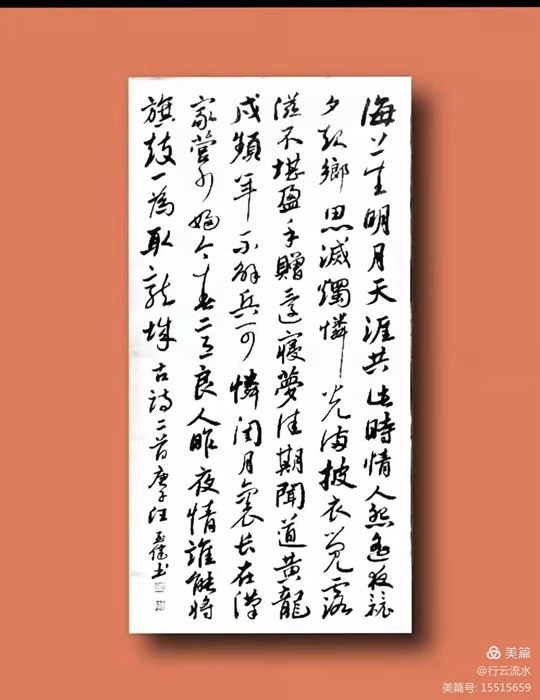 海上生明月天涯共此時情人怨遙夜竟
夕起鄉思滅燭憐光滿披衣覺露
滋不堪盈手贈還寢夢佳期聞道黃龍
戍頻年不解兵可憐閨月裏長在漢
家營少婦今春意良人昨夜情誰能將
旗鼓一為取龍城 古詩二首庚子汪玉健書
美篇
@行云流水
美篇号: 15515659